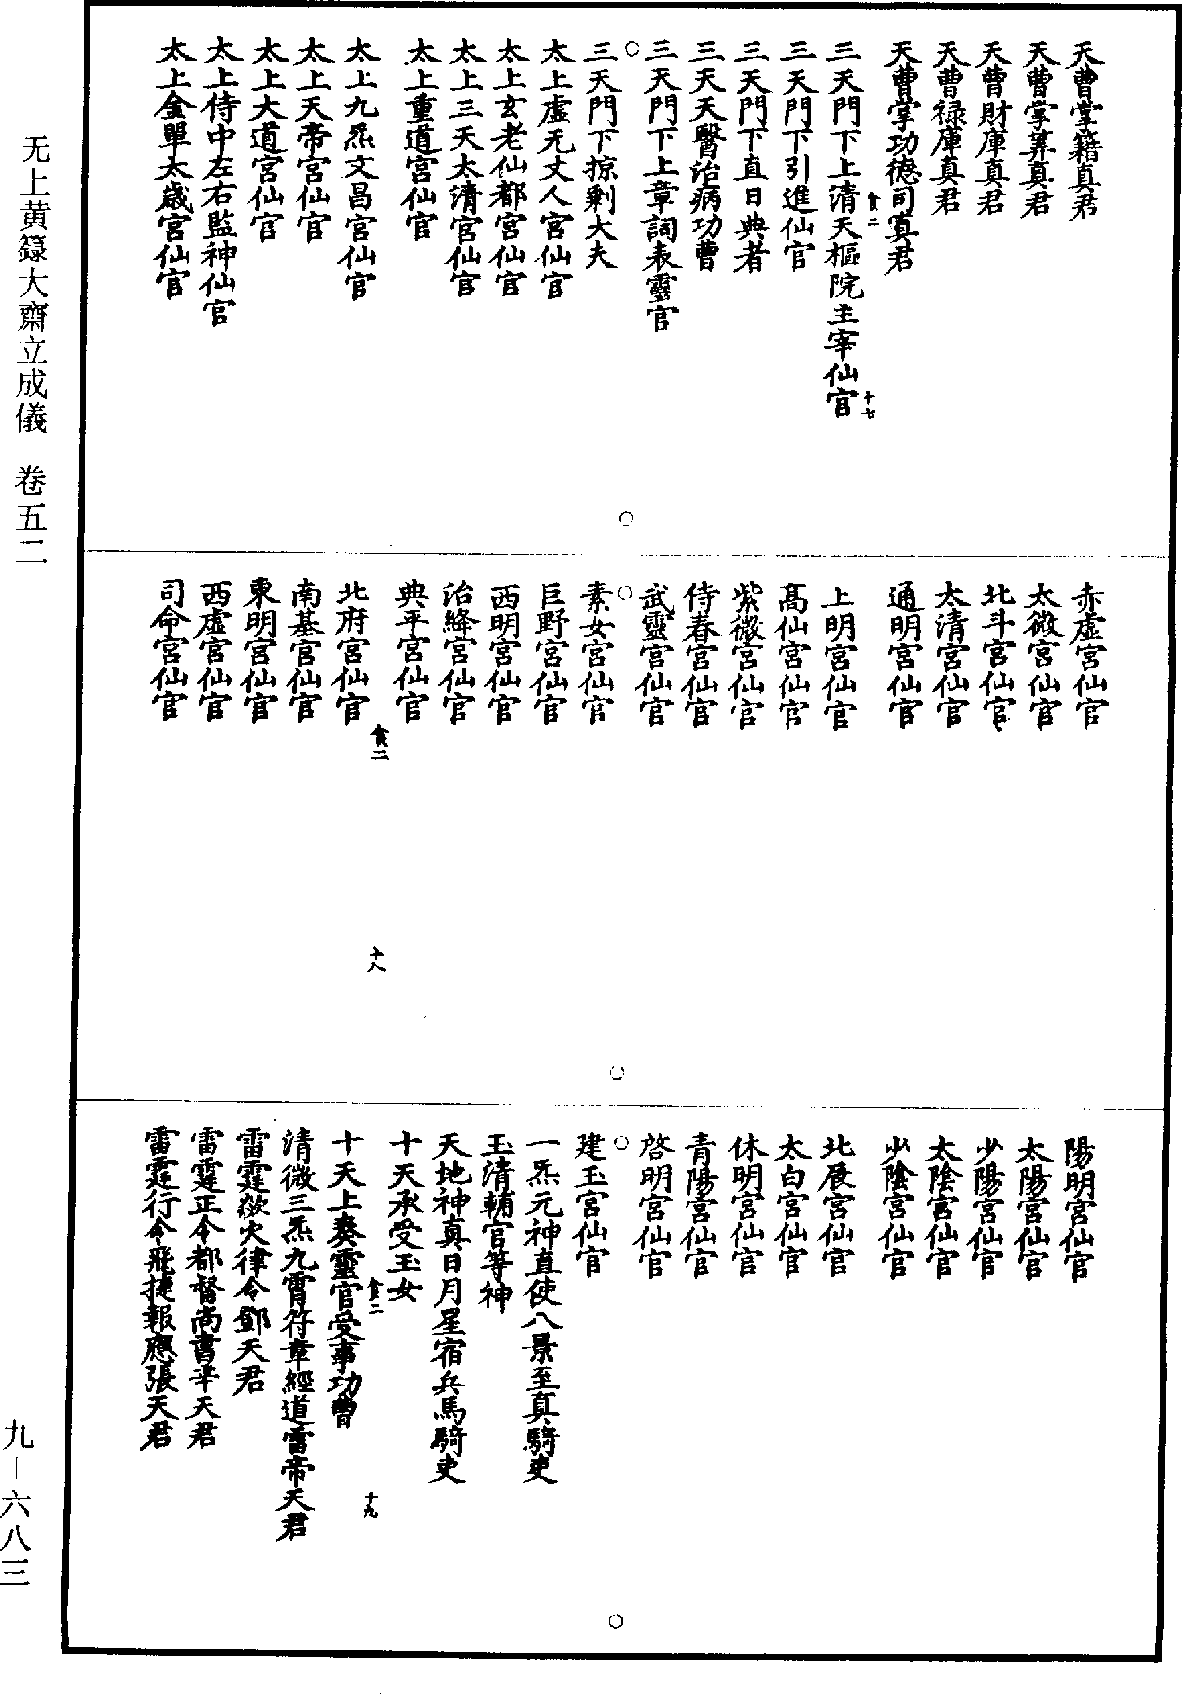 天曹掌籍真君
天曹掌筭真君
天曹財庫真君
天曹禄庫真君
天曹掌功德司真君
食二
十七
三天門下上清天樞院主宰仙官
三天門下引進仙官
三天門下直日典者
三天天醫治病功曹
三天門下上章詞表靈官
三天門下掠剩大夫
太上虛无丈人宮仙官
太上玄老仙都宮仙官
太上三天太清宮仙官
太上重道宮仙官
太上九炁文昌宮仙官
太上天帝宮仙官
太上大道宮仙官
太上侍中左右監神仙官
太上金單太歲宮仙官
赤虛宮仙官
太微宮仙官
北斗宮仙官
太清宮仙官
通明宮仙官
上明宮仙官
高仙宮仙官
紫微宮仙官
侍春宮仙官
武靈宮仙官
素女宮仙官
巨野宮仙官
西明宮仙官
治絳宮仙官
典平宮仙官
食二
十八
北府宮仙官
南基宮仙官
東明宮仙官
西虛宮仙官
司命宮仙官
陽明宮仙官
太陽宮仙官
少陽宮仙官
太陰宮仙官
少陰宮仙官
北辰宮仙官
太白宮仙官
休明宮仙官
青陽宮仙官
啓明宮仙官
建玉宮仙官
一炁元神直使八景至真騎吏
玉清輔官等神
天地神真日月星宿兵馬騎吏
十天承受玉女
食二
十九
十天上奏靈官受事功曹
清微三炁九霄符章經道雷帝天君
雷霆欻火律令鄧天君
雷霆正令都督尚書辛天君
雷霆行令飛捷報應張天君
无上黄籙大齋立成儀 卷五二
九—六八三